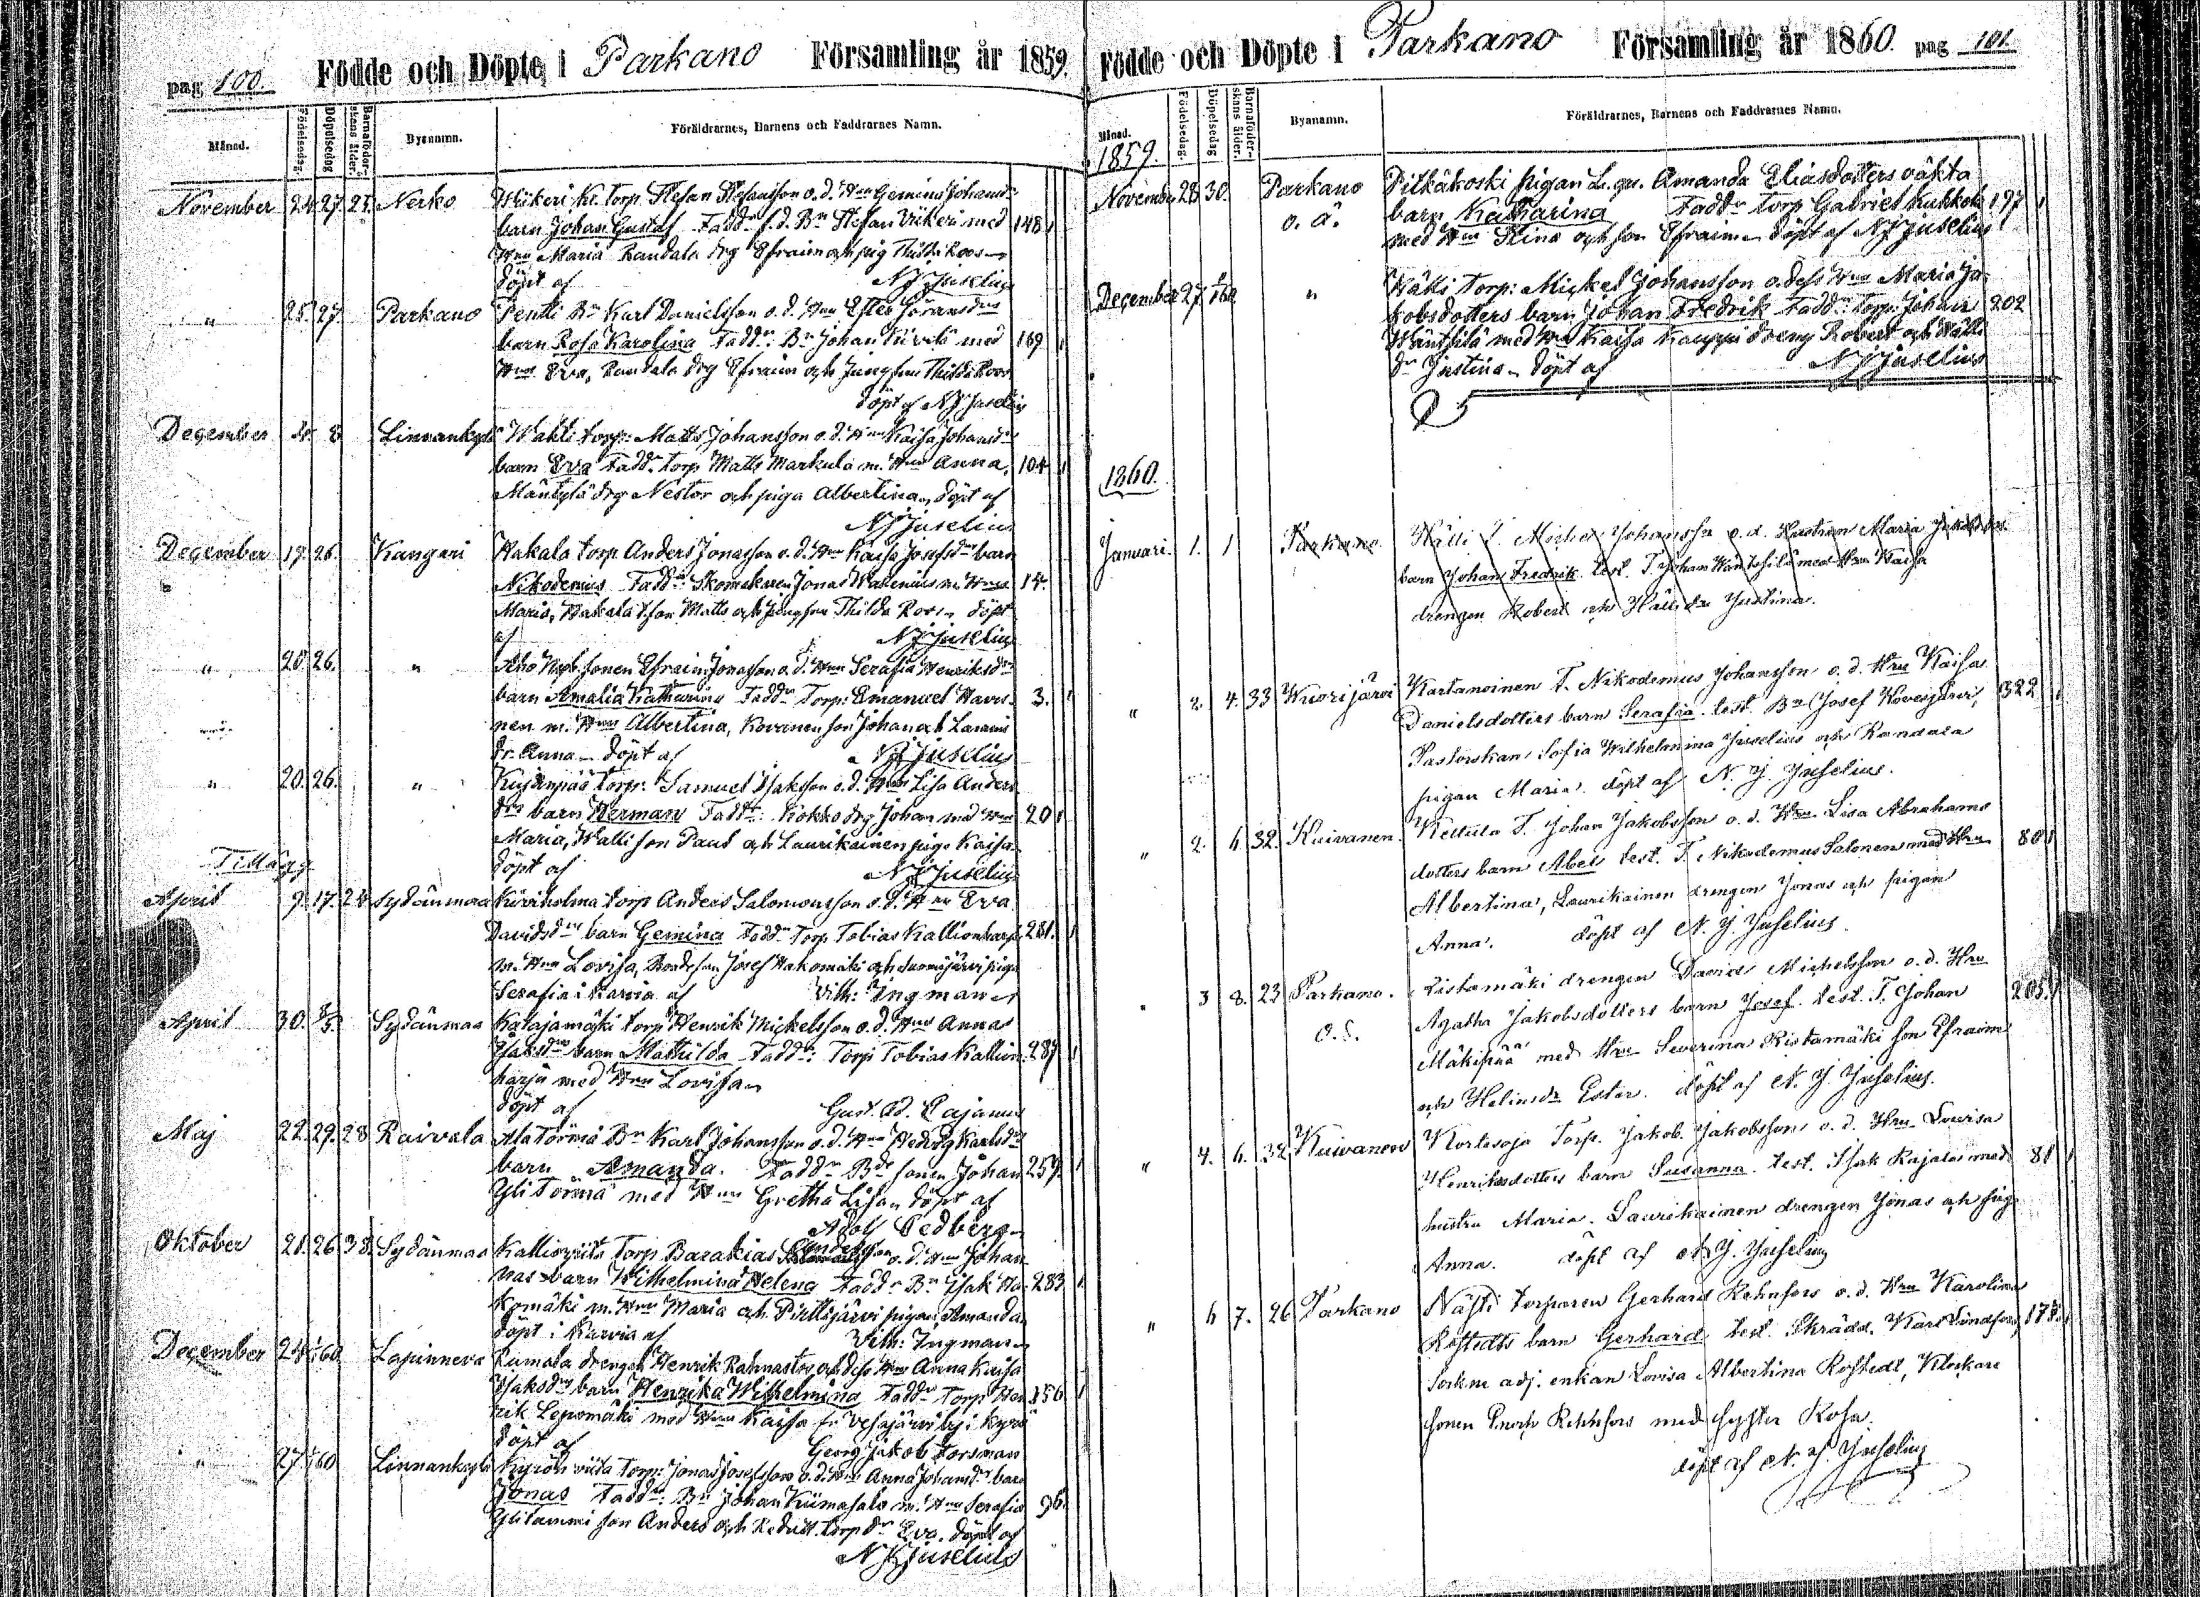 pag 100. Födde och Döpte i Parkano Församling år 1859.
Månad. Födelsedag. Döpelsedag Barnaföderskans ålder. Byanamn. Föräldrarnes, Barnens och Faddrarnes Namn.
November 24. 27. 27. Nerko Wikeri Kr. Torp. Stefan Stefansson o. d. Hru Gemina Johansdr
barn Johan Gustaf Faddr f. d. Bn Stefan Vikeri med 148
Hru Maria Raudala drg Efraim och pig Thilda Roos
döpt af N J Juselius
" 25. 27. Parkano Pentti Bn Karl Danielsson o. d. Hru Ester Göransdrs
barn Rosa Karolina Faddr: Bn Johan med 169
Hru Eva, Raudala drg Efraim och Jungfru Thilda Roos
döpt af N J Juselius
December 4. 8 Linnankylä Wahli torp: Matts Johansson o. d. Hru Kaisa Johansdrs
barn Eva Faddr torp Matts Markula m. Hru Anna, 104
Mäntylä drg Nestor och piga Albertina, döpt af
N J Juselius
December 17. 26. Kangari Hakala torp Anders Jonasson o. d. Hru Kaisa Josefsdrs barn
Nikodemus Faddr: Skomakaren Jonas Walenius m. Hru 14.
Maria, Hakala t. son Matts och Jungfru Thilda Roos, döpt
af N J Juselius
" 20. 26. " Aho Nyb. sonen Efraim Jonasson o. d. Hru Serafia Henriksdrs
barn Amalia Katharina Faddr Torp: Emanuel Havu- 3.
nen m. Hru Albertina, Kovanen son Johan och
dr. Anna, döpt af N J Juselius
" 20. 26. " Kujanpää torp: Samuel Isaksson o. d. Hru Lisa Anders
drs barn Herman Faddr: Kokko drg Johan med Hru 20
Maria, Walli son Paul och Laurikainen piga Kaisa
döpt af N J Juselius
Tillägg
April 9. 17. 24 Sydänmaa Kiviholma torp Anders Salomonsson o. d. Hru Eva
Davidsdrs barn Gemina Faddr Torp Tobias Kallionharju 281.
m. Hru Lovisa, Bondeson Josef Hakomäki och Suomijärvi piga
Serafia i Karvia af Vilh: Ingman
April 30. 8/5 Sydänmaa Katajamäki torp Henrik Mickelsson o. d. Hru Anna
Isaksdrs barn Mathilda Faddr: Torp Tobias Kallion- 287
harju med Hru Lovisa
döpt af Gust. Ad. Cajanus
Maj 22. 29. 28 Raivala Ala Törmä Bn Karl Johansson o. d. Hru Hedvig Karlsdrs
barn Amanda. Faddr Bde sonen Johan 259.
Yli Törmä med Hru Gretha Lisa, döpt af
Adolf Hedberg
Oktober 21. 26 38. Sydänmaa Kallionviita Torp Barakias Andersson o. d. Hru Johan
nas barn Wilhelmina Helena Faddr Bn Isak Ha- 283
komäki m. Hru Maria och Pirttijärvi pigan Amanda
döpt i Karvia af Vilh: Ingman
December 24. 1/1 60 Lapinneva Rumala drengen Henrik Rahnasto och dess Hru Anna Kaisa
Isaksdrs barn Henrika Wilhelmina Faddr Torp Hen- 156
rik Lepomäki med Hru Kaisa fr. Vesajärvi by i Kyrö
döpt af Georg Jakob Forsman
" 27. 1/1 60 Linnankylä Kyrönviita torp: Jonas Josefsson o. d. Hru Anna Johansdrs barn
Jonas Faddr: Bn Johan Kiimasalo m. Hru Serafia 96.
Ylilammi son Anders och torp dr Eva. döpt af
N J Juselius
Födde och Döpte i Parkano Församling år 1860. pag 101.
Månad. Födelsedag. Döpelsedag Barnaföderskans ålder. Byanamn. Föräldrarnes, Barnens och Faddrarnes Namn.
1859.
November 28 30. Parkano Pitkäkoski pigan L. qv. Amanda Eliasdotters oäkta
o. ä. barn Katharina Faddr torp Gabriel Kuhkola 197
med Hru Stina och son Efraim, döpt af N J Juselius
December 27. 1/1 60 " Hälli torp: Mickel Johansson o. dess Hru Maria Ja-
kobsdotters barn Johan Fredrik Faddr: torp: Johan 202
Wäntsilä med Hru Kaisa Kauppi dreng Robert och Hälli
dr Justina, döpt af N J Juselius
1860.
Januari. 1. 1 Parkano. Hälli T. Michel Johansson o. d. Hustrun Maria Jakobsdotters
barn Johan Fredrik. test. T. Johan Wäntsilä med Hru Kaisa
drengen Robert och Hälli dr Justina.
" 2. 4. 33 Kuorijärvi Kartanoinen T. Nikodemus Johansson o. d. Hru Kaisa
Danielsdotters barn Serafia. test. Bn Josef Koverojärvi, 322
Pastorskan Sofia Wilhelmina Juselius och Randala
pigan Maria. döpt af N. J. Juselius.
" 2. 6. 32. Kuivanen. Kettula T. Johan Jakobsson o. d. Hru Lisa Abrahams
dotters barn Abel test. T. Nikodemus Salonen med Hru 80
Albertina, Laurikainen drengen Jonas och pigan
Anna. döpt af N. J. Juselius.
" 3 8. 23 Parkano. Ristamäki drengen David Michelsson o. d. Hru
o. ä. Agatha Jakobsdotters barn Josef. test. T. Johan 205.
Mäkipää med Hru Severina Ristamäki son Efraim
och Helin dr Ester. döpt af N. J. Juselius.
" 4. 6. 32 Kuivanen Kortesoja Torp. Jakob Jakobsson o. d. Hru Lovisa
Henriksdotters barn Susanna. test. Isak Rajala med 81
hustru Maria. Laurikainen drengen Jonas och pig.
Anna. döpt af N. J. Juselius
" 6 7. 26 Parkano Näsi torparen Gerhard Rehnfors o. d. Hru Karolina
Rostedts barn Gerhard test. Skrädd. Karl Lindfors, 175
Sockne adj. enkan Lovisa Albertina Rostedt, Klockare
sonen Enoch Rehnfors med syster Rosa.
döpt af N. J. Juselius